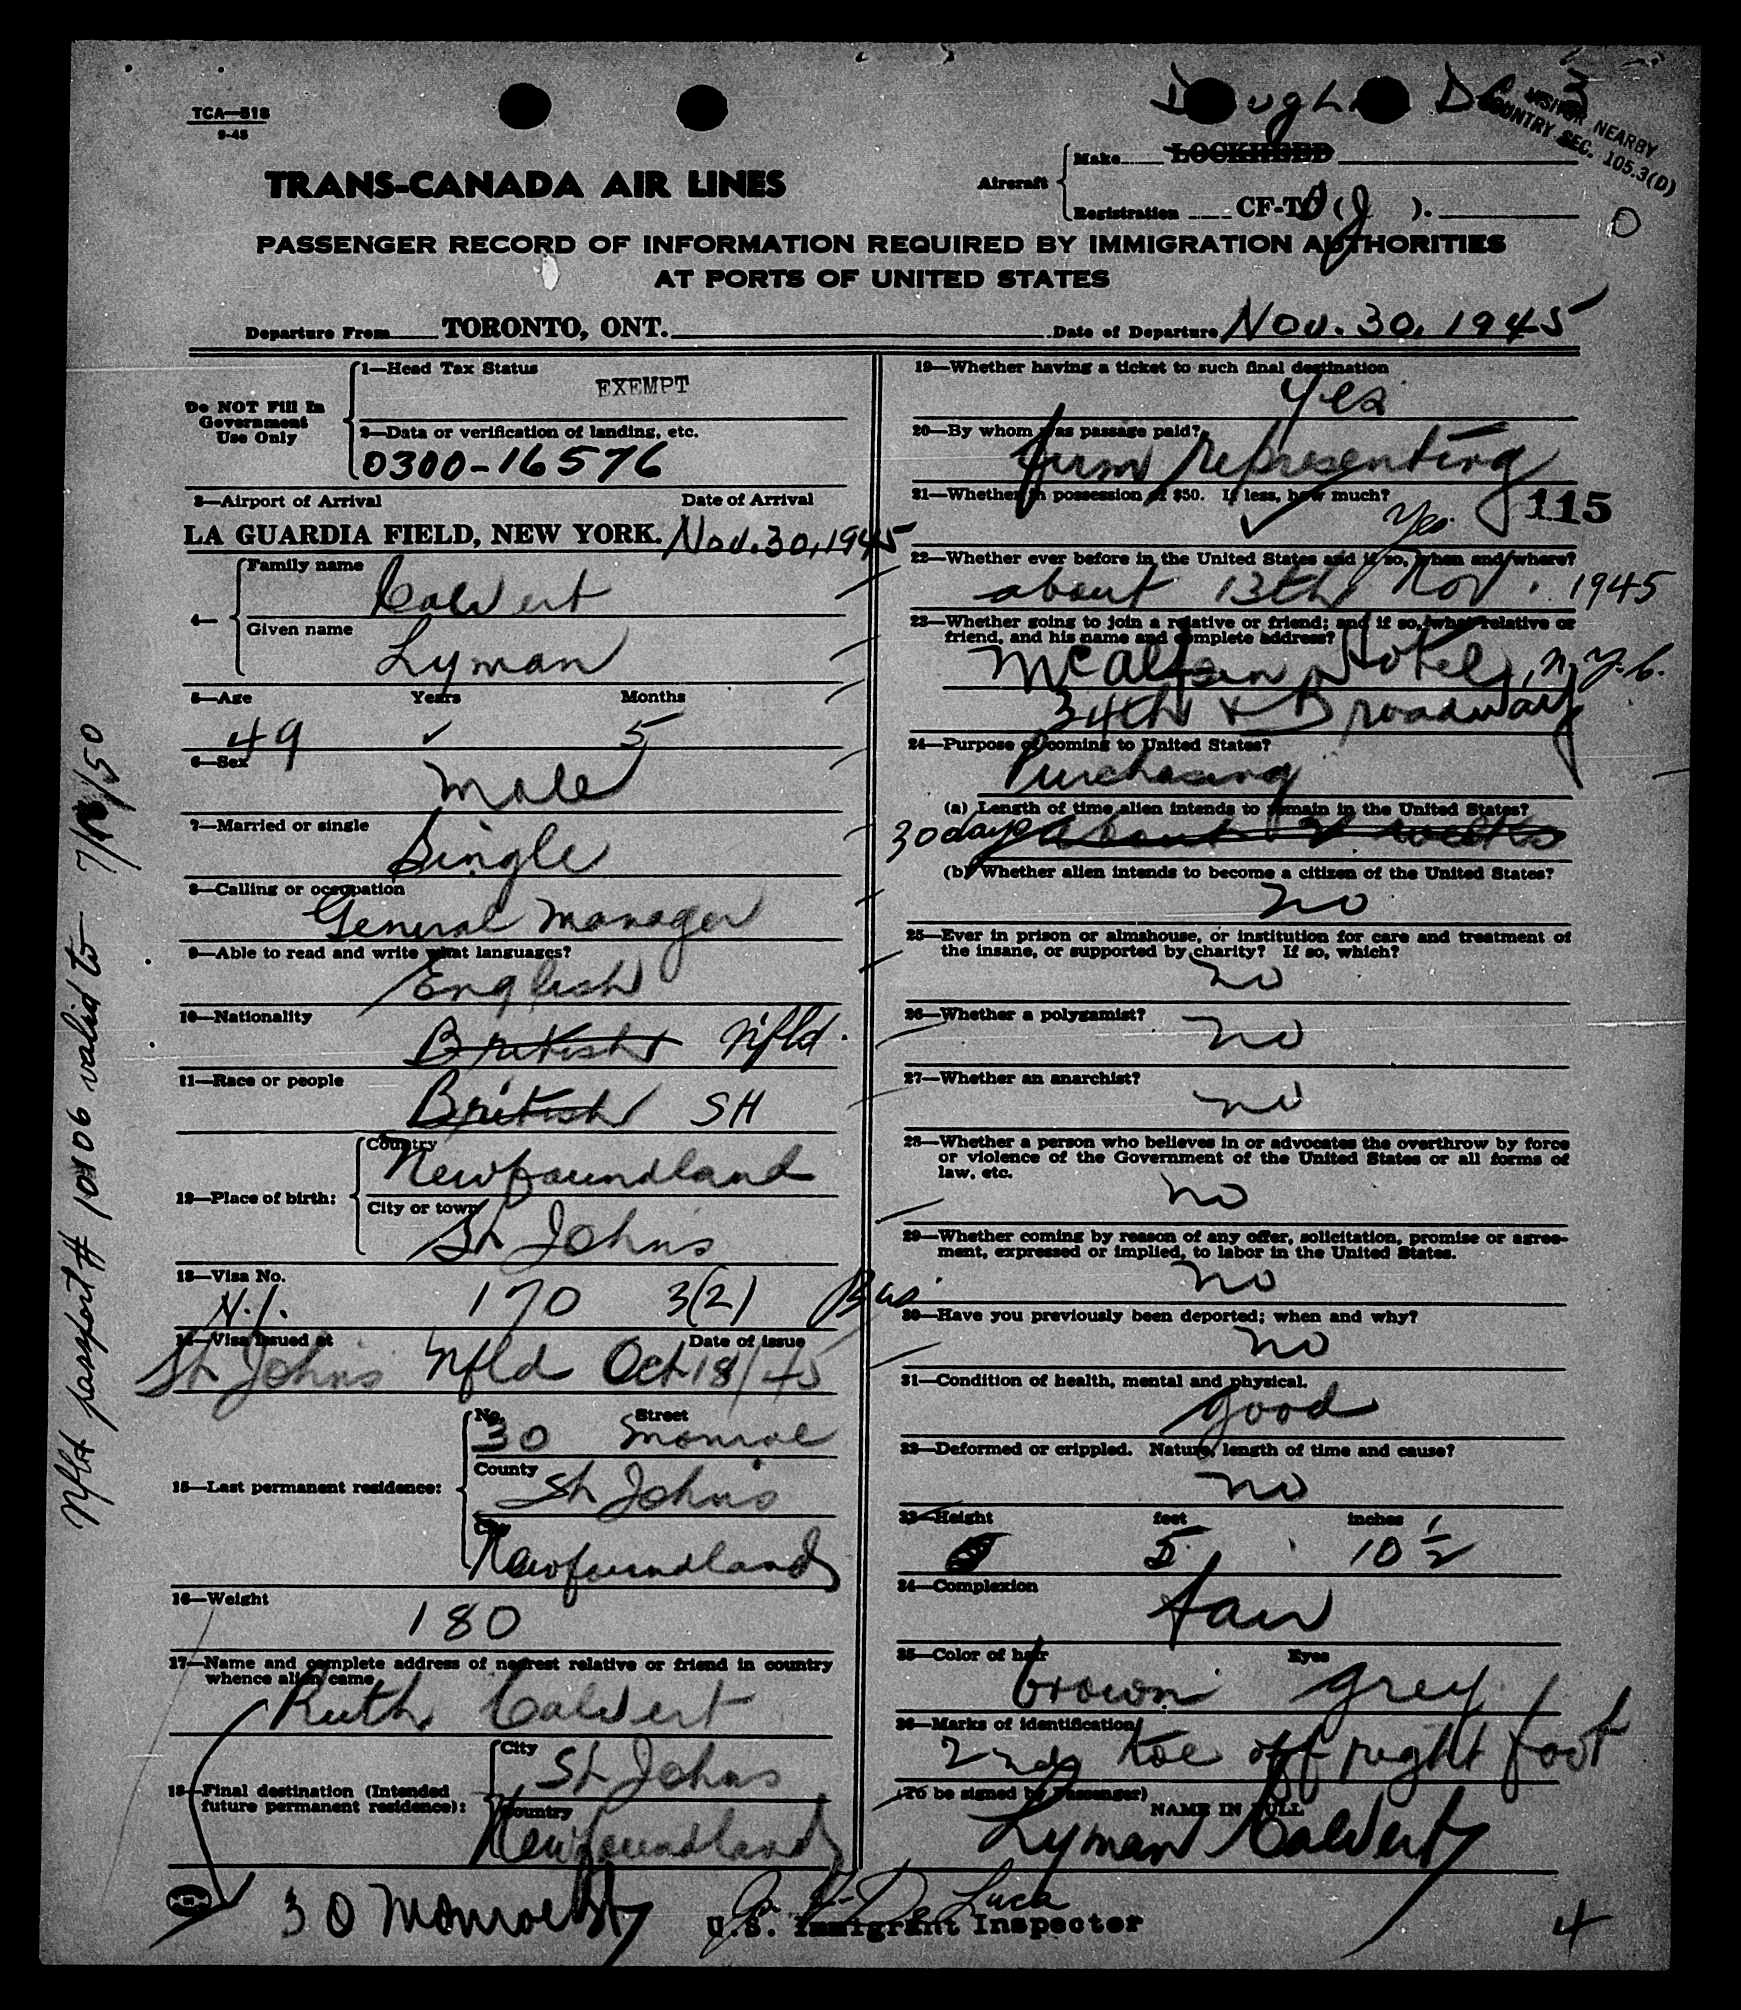 TCA—518
9-45
Douglas DC 3
VISITOR NEARBY
COUNTRY SEC. 105.3(D)
TRANS-CANADA AIR LINES
Aircraft
Make LOCKHEED
Registration CF-T (J ).
O
PASSENGER RECORD OF INFORMATION REQUIRED BY IMMIGRATION AUTHORITIES
AT PORTS OF UNITED STATES
Departure From TORONTO, ONT. Date of Departure Nov. 30, 1945
Do NOT Fill In
Government
Use Only
1—Head Tax Status
EXEMPT
2—Data or verification of landing, etc.
0300-16576
3—Airport of Arrival Date of Arrival
LA GUARDIA FIELD, NEW YORK. Nov. 30, 1945
4—
Family name
Calvert
Given name
Lyman
5—Age Years Months
49 ✓ 5
6—Sex
male
7—Married or single
Single
8—Calling or occupation
General Manager
9—Able to read and write what languages?
English
10—Nationality
British Nfld.
11—Race or people
British SH
12—Place of birth:
Country
Newfoundland
City or town
St Johns
13—Visa No.
N.I. 170 3(2) Bus.
14—Visa issued at Date of issue
St Johns Nfld Oct 18/45
15—Last permanent residence:
No. Street
30 Monroe
County
St Johns
City
Newfoundland
16—Weight
180
17—Name and complete address of nearest relative or friend in country
whence alien came
Ruth Calvert
18—Final destination (Intended
future permanent residence):
City
St Johns
Country
Newfoundland
30 Monroe St
Nfld passport # valid to
19—Whether having a ticket to such final destination
Yes
20—By whom was passage paid?
firm representing
21—Whether in possession of $50. If less, how much?
✓ Yes. 115
22—Whether ever before in the United States and if so, when and where?
about 13th Nov. 1945
23—Whether going to join a relative or friend; and if so, what relative or
friend, and his name and complete address?
McAlpin Hotel, N.Y.C.
34th & Broadway
24—Purpose of coming to United States?
Purchasing
(a) Length of time alien intends to remain in the United States?
30 days about weeks
(b) Whether alien intends to become a citizen of the United States?
no
25—Ever in prison or almshouse, or institution for care and treatment of
the insane, or supported by charity? If so, which?
no
26—Whether a polygamist?
no
27—Whether an anarchist?
no
28—Whether a person who believes in or advocates the overthrow by force
or violence of the Government of the United States or all forms of
law, etc.
no
29—Whether coming by reason of any offer, solicitation, promise or agree-
ment, expressed or implied, to labor in the United States.
no
30—Have you previously been deported; when and why?
no
31—Condition of health, mental and physical.
good
32—Deformed or crippled. Nature, length of time and cause?
no
33—Height feet inches
5 10 1/2
34—Complexion
fair
35—Color of hair Eyes
brown grey
36—Marks of identification
2nd toe off right foot
(To be signed by Passenger)
NAME IN FULL
Lyman Calvert
De Luca
U.S. Immigrant Inspector
4